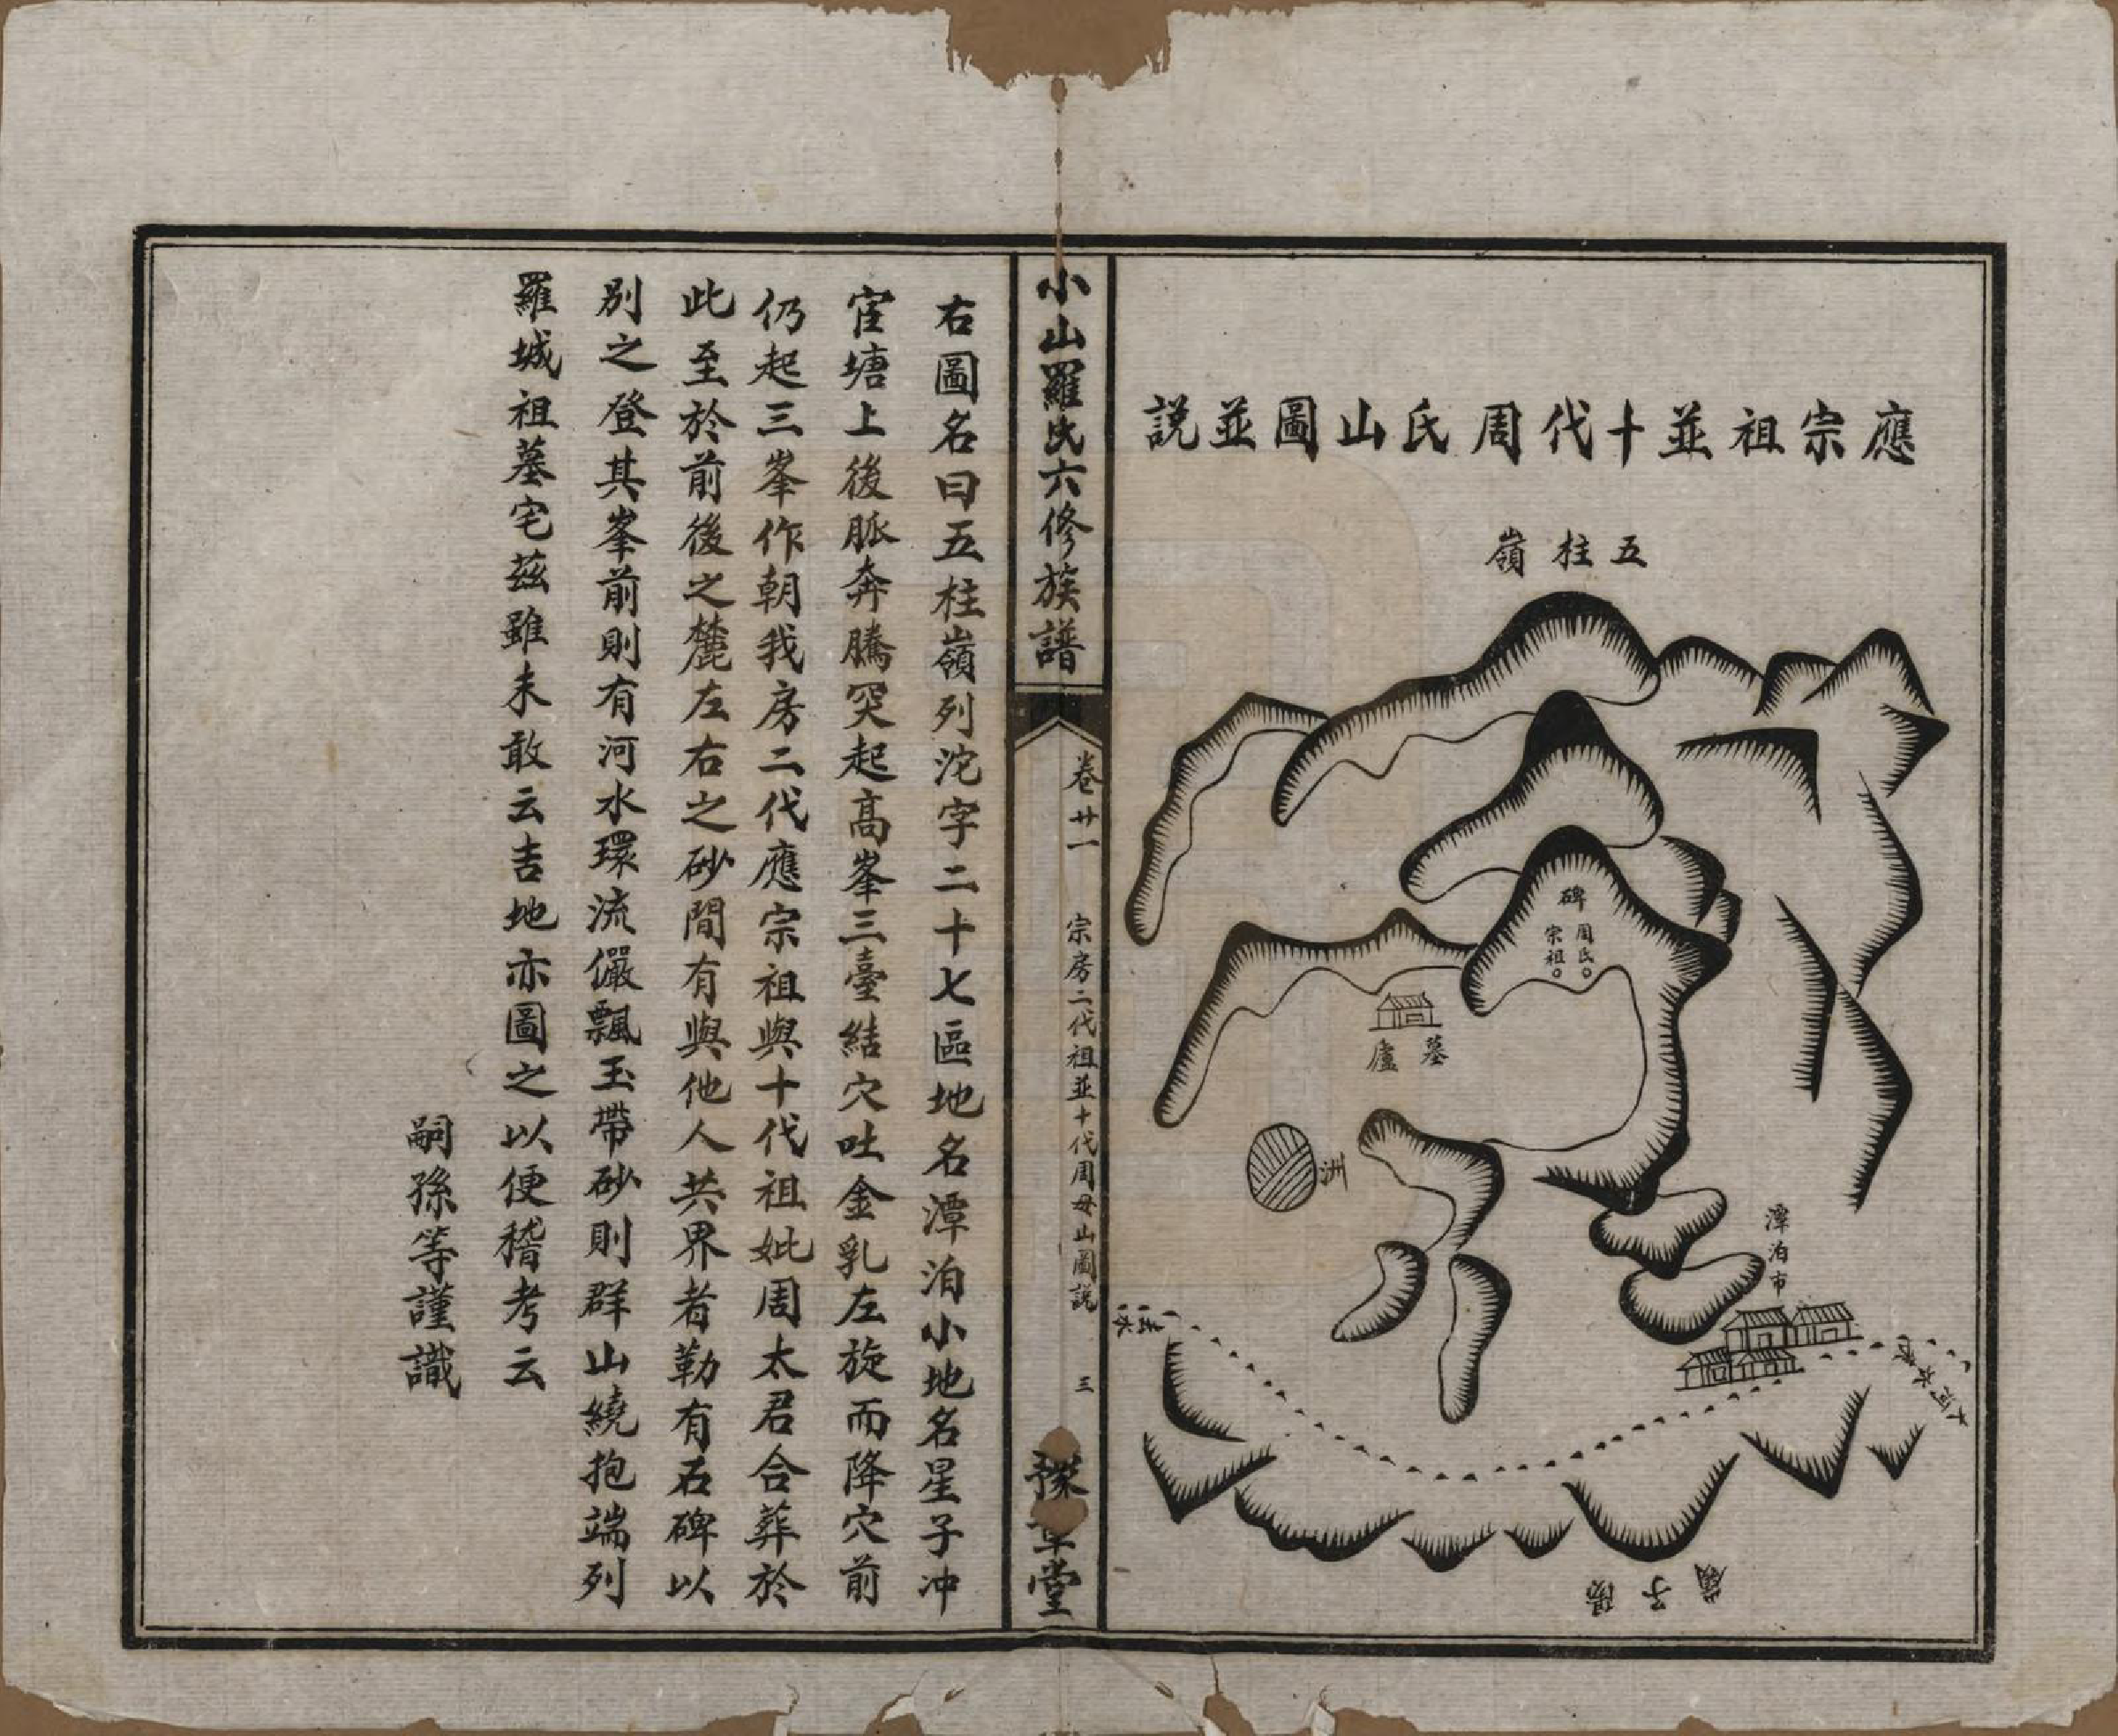 應宗祖並十代周氏山圖並説
五柱嶺
碑
周氏
宗祖
墓廬
洲
潭泊市
大河水
去水
小山羅氏六修族譜
卷廿一
宗房二代祖並十代周母山圖説
三
豫章堂
右圖名曰五柱嶺列沱字二十七區地名潭泊小地名星子冲
塘上後脈奔騰突起高峯三臺結穴吐金乳左旋而降穴前
仍起三峯作朝我房二代應宗祖與十代祖妣周太君合葬於
此至於前後之麓左右之砂間有與他人共界者勒有石碑以
別之登其峯前則有河水環流儼飄玉帶砂則群山繞抱端列
羅城祖墓宅茲雖未敢云吉地亦圖之以便稽考云
嗣孫等謹識